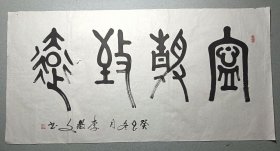 寧靜致遠
癸巳年月 李
书